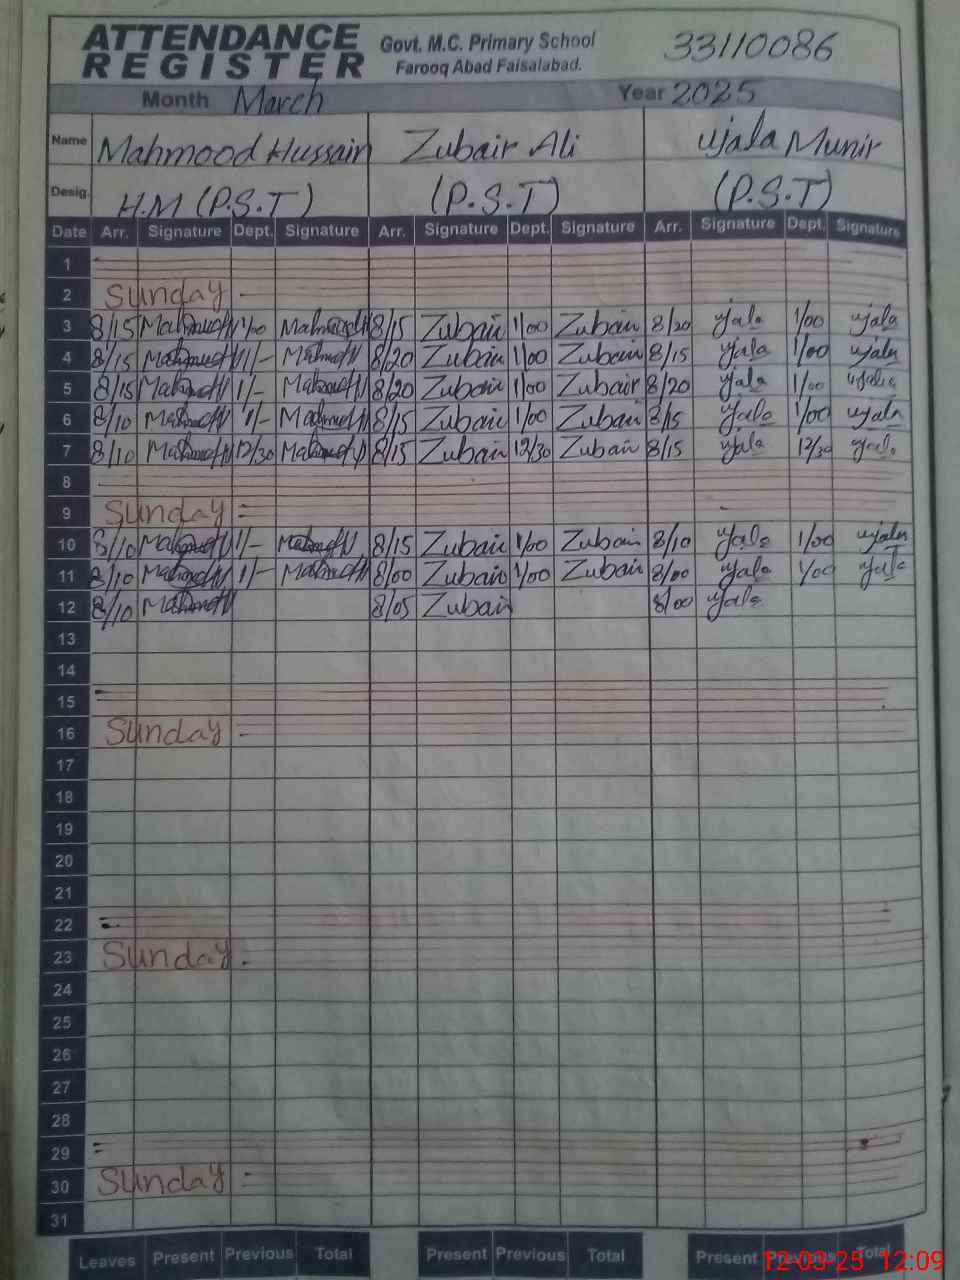 ATTENDANCE REGISTER Govt. M.C. Primary School Farooq Abad Faisalabad. 33110086
Month March Year 2025
Name Mahmood Hussain Zubair Ali ujala Munir
Desig. H.M (P.S.T) (P.S.T) (P.S.T)
Date Arr. Signature Dept. Signature Arr. Signature Dept. Signature Arr. Signature Dept. Signature
1
2 Sunday
3 8/15 1/00 8/15 Zubair 1/00 Zubair 8/20 ujala 1/00 ujala
4 8/15 1/- 8/20 Zubair 1/00 Zubair 8/15 ujala 1/00 ujala
5 8/15 1/- 8/20 Zubair 1/00 Zubair 8/20 ujala 1/00 ujala
6 8/10 1/- 8/15 Zubair 1/00 Zubair 8/15 ujala 1/00 ujala
7 8/10 12/30 8/15 Zubair 12/30 Zubair 8/15 ujala 12/30 ujala
8
9 Sunday
10 8/10 1/- 8/15 Zubair 1/00 Zubair 8/10 ujala 1/00 ujala
11 8/10 1/- 8/00 Zubair 1/00 Zubair 8/00 ujala 1/00 ujala
12 8/10 8/05 Zubair 8/00 ujala
13
14
15
16 Sunday
17
18
19
20
21
22
23 Sunday
24
25
26
27
28
29
30 Sunday
31
Leaves Present Previous Total Present Previous Total Present Previous Total
12-03-25 12:09